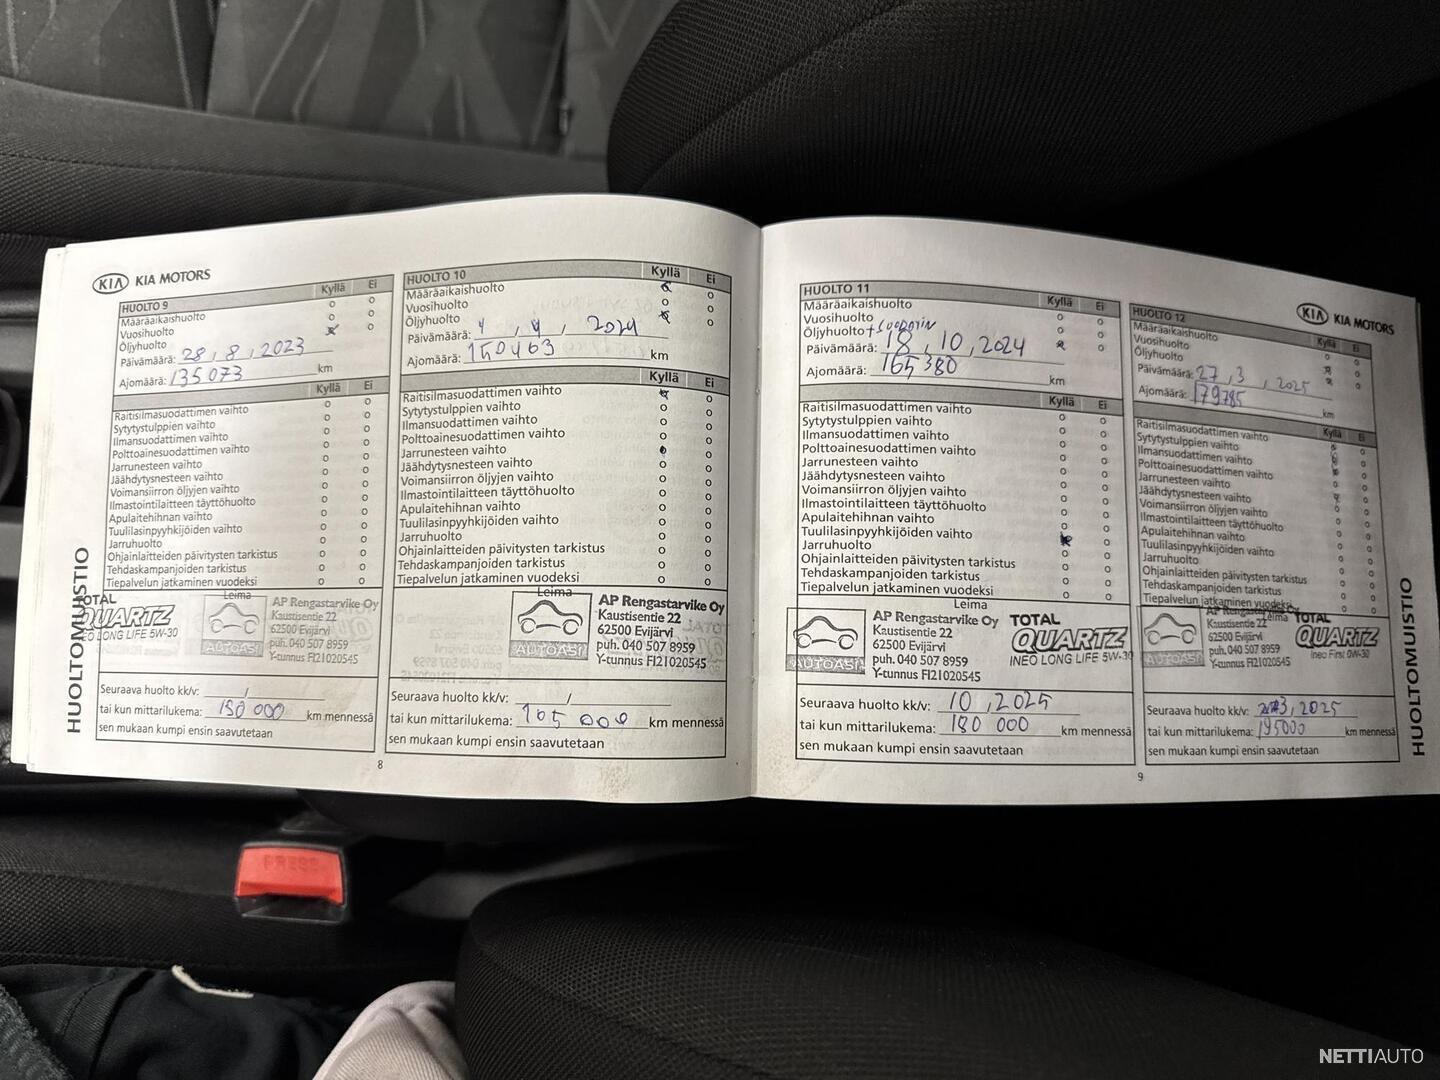 KIA KIA MOTORS
HUOLTO 9 Kyllä Ei
Määräaikaishuolto
Vuosihuolto
Öljyhuolto
Päivämäärä: 28, 8, 2023
Ajomäärä: 135073 km
Kyllä Ei
Raitisilmasuodattimen vaihto
Sytytystulppien vaihto
Ilmansuodattimen vaihto
Polttoainesuodattimen vaihto
Jarrunesteen vaihto
Jäähdytysnesteen vaihto
Voimansiirron öljyjen vaihto
Ilmastointilaitteen täyttöhuolto
Apulaitehihnan vaihto
Tuulilasinpyyhkijöiden vaihto
Jarruhuolto
Ohjainlaitteiden päivitysten tarkistus
Tehdaskampanjoiden tarkistus
Tiepalvelun jatkaminen vuodeksi
Leima
TOTAL
QUARTZ
INEO LONG LIFE 5W-30
AUTOASI
AP Rengastarvike Oy
Kaustisentie 22
62500 Evijärvi
puh. 040 507 8959
Y-tunnus FI21020545
Seuraava huolto kk/v: /
tai kun mittarilukema: 150 000 km mennessä
sen mukaan kumpi ensin saavutetaan
HUOLTO 10 Kyllä Ei
Määräaikaishuolto
Vuosihuolto
Öljyhuolto
Päivämäärä: 4, 4, 2024
Ajomäärä: 150463 km
Kyllä Ei
Raitisilmasuodattimen vaihto
Sytytystulppien vaihto
Ilmansuodattimen vaihto
Polttoainesuodattimen vaihto
Jarrunesteen vaihto
Jäähdytysnesteen vaihto
Voimansiirron öljyjen vaihto
Ilmastointilaitteen täyttöhuolto
Apulaitehihnan vaihto
Tuulilasinpyyhkijöiden vaihto
Jarruhuolto
Ohjainlaitteiden päivitysten tarkistus
Tehdaskampanjoiden tarkistus
Tiepalvelun jatkaminen vuodeksi
Leima
AUTOASI
AP Rengastarvike Oy
Kaustisentie 22
62500 Evijärvi
puh. 040 507 8959
Y-tunnus FI21020545
Seuraava huolto kk/v: /
tai kun mittarilukema: 165 000 km mennessä
sen mukaan kumpi ensin saavutetaan
HUOLTOMUISTIO
8
HUOLTO 11 Kyllä Ei
Määräaikaishuolto
Vuosihuolto
Öljyhuolto + suodatin
Päivämäärä: 18, 10, 2024
Ajomäärä: 165380 km
Kyllä Ei
Raitisilmasuodattimen vaihto
Sytytystulppien vaihto
Ilmansuodattimen vaihto
Polttoainesuodattimen vaihto
Jarrunesteen vaihto
Jäähdytysnesteen vaihto
Voimansiirron öljyjen vaihto
Ilmastointilaitteen täyttöhuolto
Apulaitehihnan vaihto
Tuulilasinpyyhkijöiden vaihto
Jarruhuolto
Ohjainlaitteiden päivitysten tarkistus
Tehdaskampanjoiden tarkistus
Tiepalvelun jatkaminen vuodeksi
Leima
AUTOASI
AP Rengastarvike Oy
Kaustisentie 22
62500 Evijärvi
puh. 040 507 8959
Y-tunnus FI21020545
TOTAL
QUARTZ
INEO LONG LIFE 5W-30
Seuraava huolto kk/v: 10, 2025
tai kun mittarilukema: 180 000 km mennessä
sen mukaan kumpi ensin saavutetaan
KIA KIA MOTORS
HUOLTO 12 Kyllä Ei
Määräaikaishuolto
Vuosihuolto
Öljyhuolto
Päivämäärä: 27, 3, 2025
Ajomäärä: 179785 km
Kyllä Ei
Raitisilmasuodattimen vaihto
Sytytystulppien vaihto
Ilmansuodattimen vaihto
Polttoainesuodattimen vaihto
Jarrunesteen vaihto
Jäähdytysnesteen vaihto
Voimansiirron öljyjen vaihto
Ilmastointilaitteen täyttöhuolto
Apulaitehihnan vaihto
Tuulilasinpyyhkijöiden vaihto
Jarruhuolto
Ohjainlaitteiden päivitysten tarkistus
Tehdaskampanjoiden tarkistus
Tiepalvelun jatkaminen vuodeksi
Leima
AUTOASI
AP Rengastarvike Oy
Kaustisentie 22
62500 Evijärvi
puh. 040 507 8959
Y-tunnus FI21020545
TOTAL
QUARTZ
Ineo First 0W-30
Seuraava huolto kk/v: 3, 2025
tai kun mittarilukema: 195000 km mennessä
sen mukaan kumpi ensin saavutetaan
HUOLTOMUISTIO
9
PRESS
NETTIAUTO